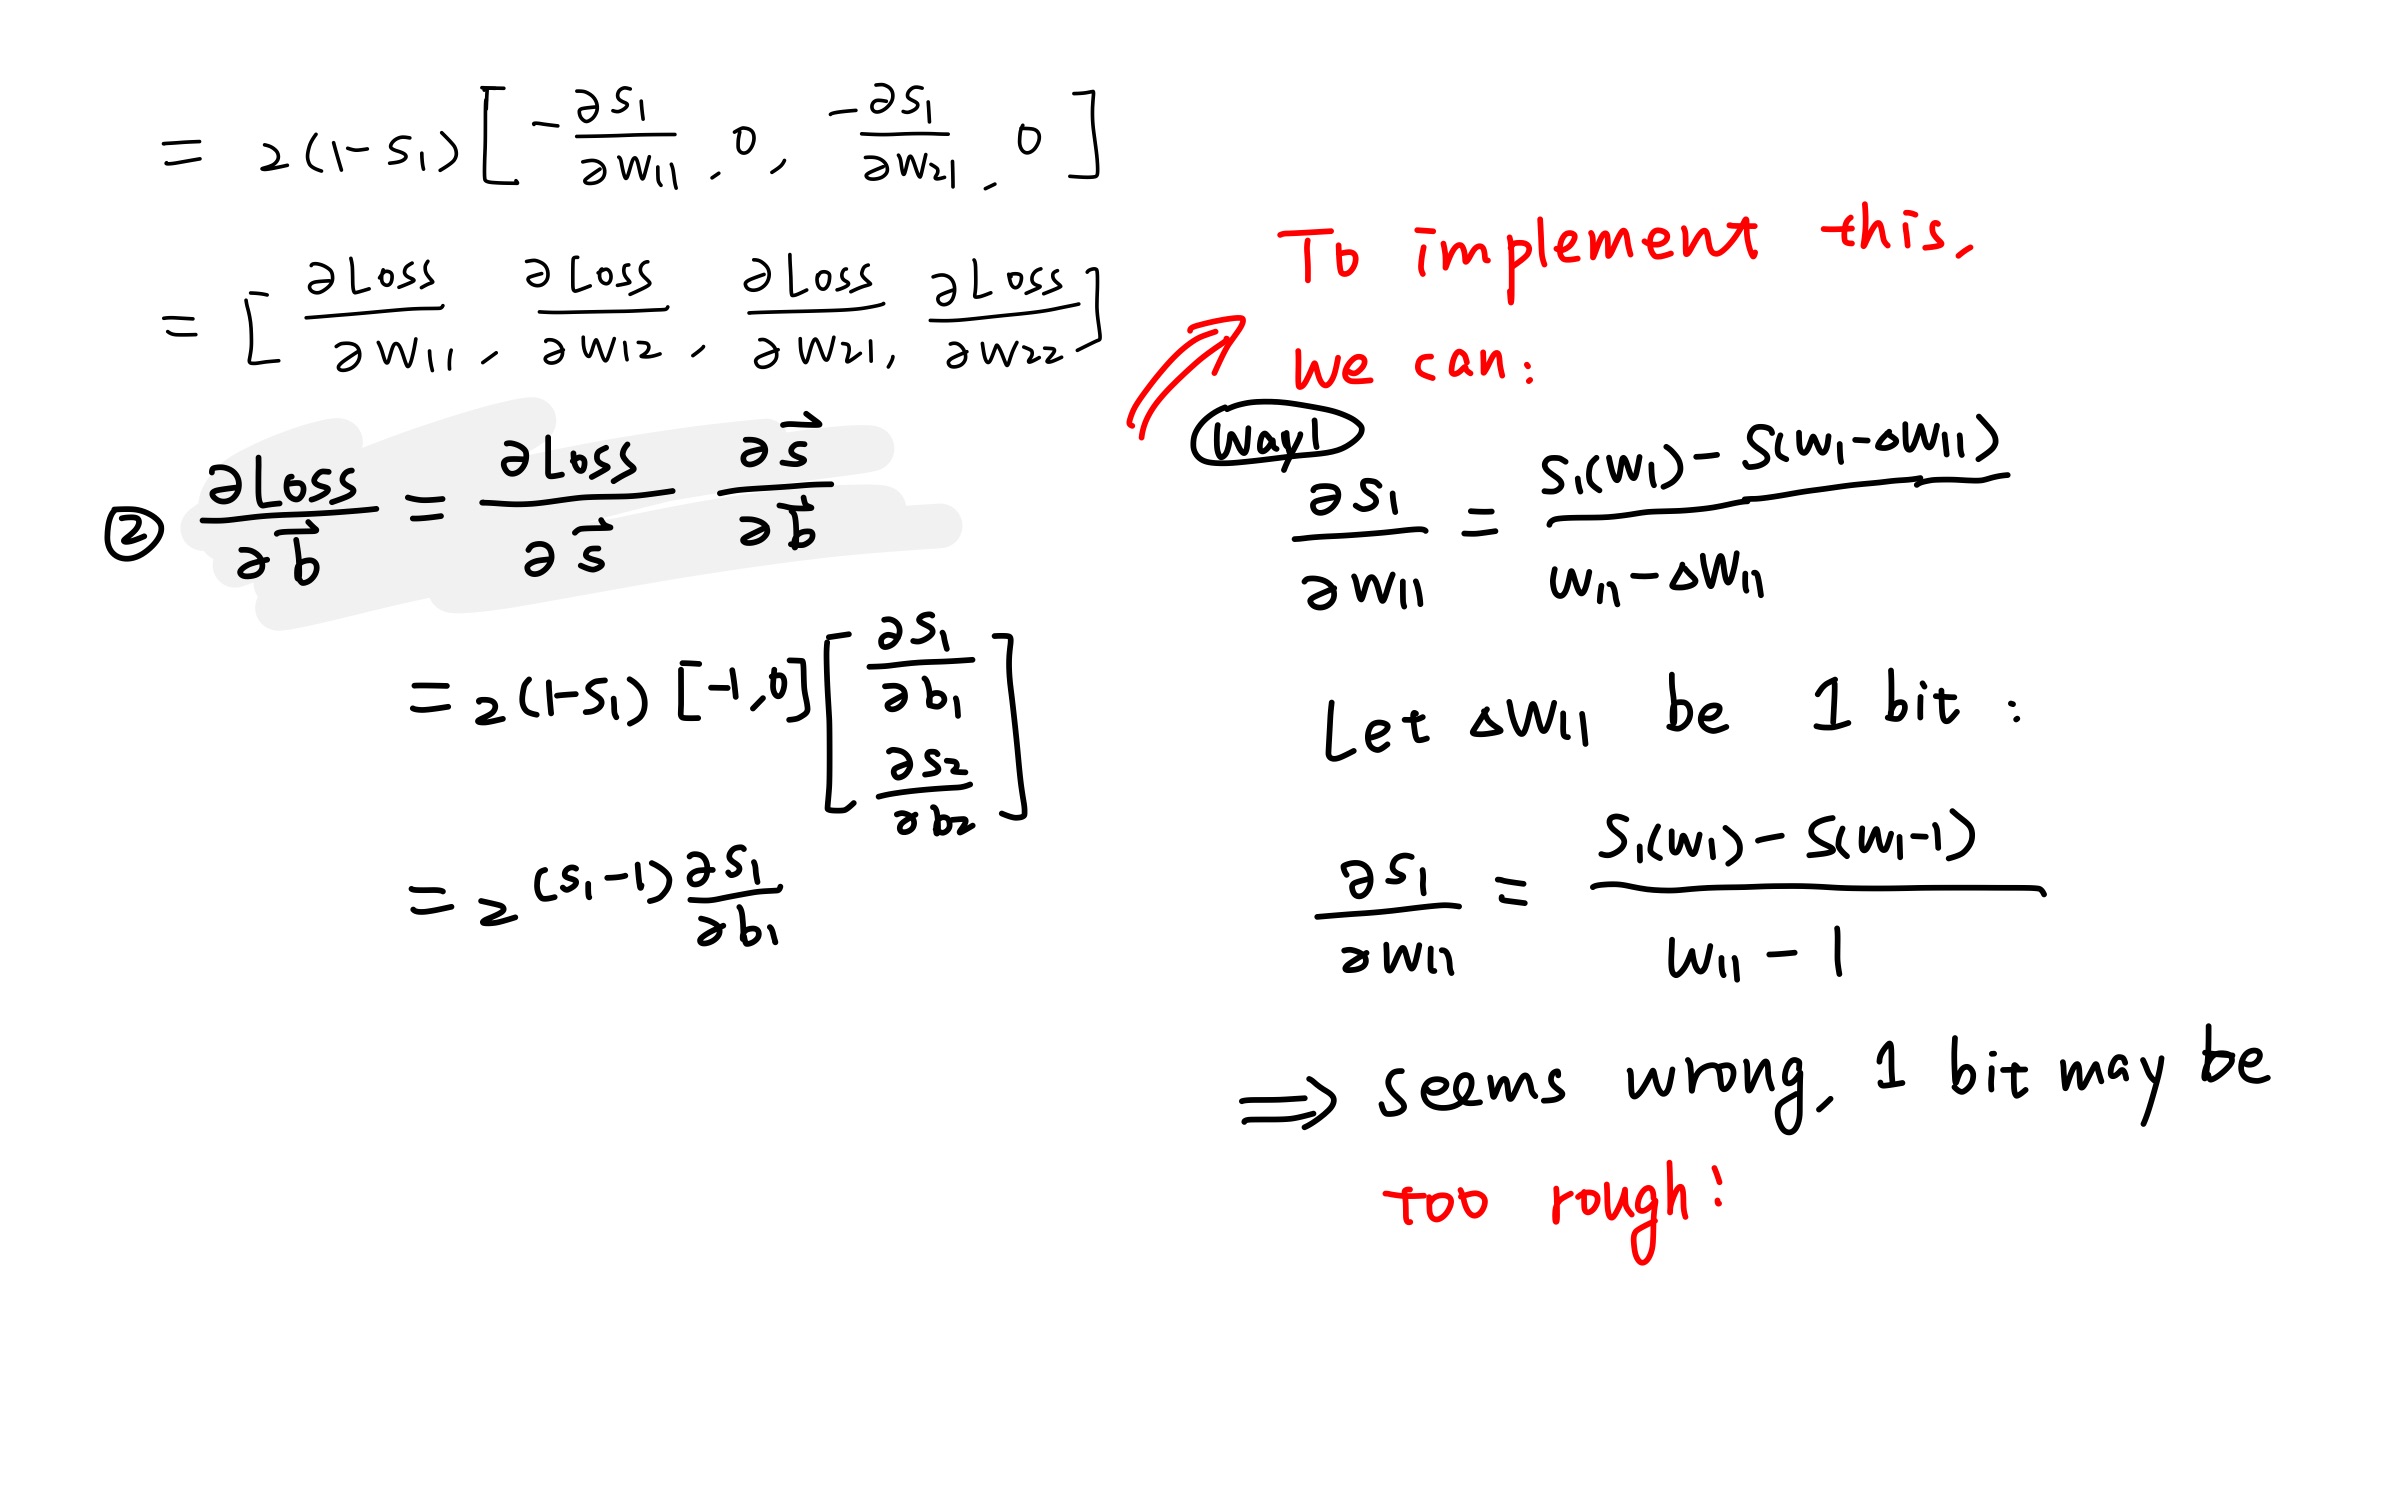 = 2(1-s₁) [ -∂s₁/∂w₁₁ , 0 , -∂s₁/∂w₂₁ , 0 ]
= [ ∂Loss/∂w₁₁ , ∂Loss/∂w₁₂ , ∂Loss/∂w₂₁ , ∂Loss/∂w₂₂ ]
② ∂Loss/∂b⃗ = ∂Loss/∂s⃗ ∂s⃗/∂b⃗
= 2(1-s₁) [-1,0] [ ∂s₁/∂b₁ ∂s₂/∂b₂ ]
= 2(s₁-1) ∂s₁/∂b₁
To implement this,
we can:
way1
∂s₁/∂w₁₁ = S₁(w₁) - S(w₁-△w₁₁) / w₁₁-△w₁₁
Let △w₁₁ be 1 bit :
∂s₁/∂w₁₁ = S₁(w₁) - S(w₁-1) / w₁₁ - 1
⇒ Seems wrong, 1 bit may be
too rough!